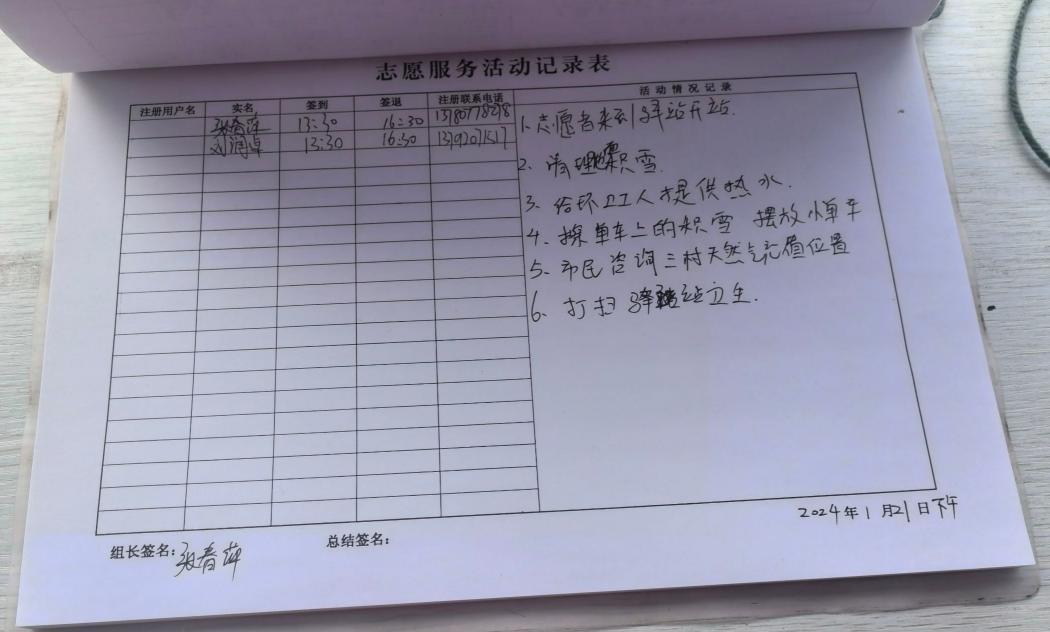 志愿服务活动记录表
注册用户名 实名 签到 签退 注册联系电话 活动情况记录
张春萍 13:30 16:30 13780778278
刘润卓 13:30 16:30
1.志愿者来到驿站开站.
2、清理积雪.
3、给环卫工人提供热水.
4、擦单车上的积雪 摆放小单车
5、市民咨询三村天然气充值位置
6、打扫驿站卫生.
2024年1月21日下午
组长签名:张春萍 总结签名: